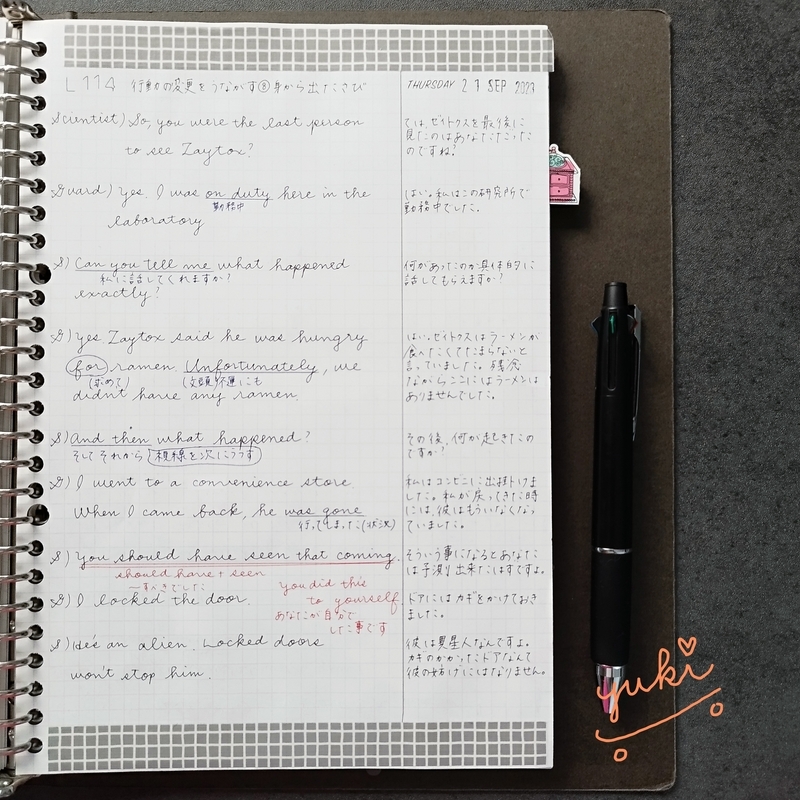 L 114 行動の変更をうながす⑧身から出たさび
THURSDAY 21 SEP 2023
Scientist) So, you were the last person
to see Zaytox?
では、ゼイトクスを最後に
見たのはあなただった
のですね?
Guard) Yes. I was on duty here in the
勤務中
laboratory
はい。私はこの研究所で
勤務中でした。
S) Can you tell me what happened
私に話してくれますか?
exactly?
何があったのか具体的に
話してもらえますか?
G) Yes Zaytox said he was hungry
for ramen. Unfortunately, we
(求めて) (文頭)不運にも
didn't have any ramen.
はい。ゼイトクスはラーメンが
食べたくてたまらないと
言っていました。残念
ながらここにはラーメンは
ありませんでした。
S) And then what happened?
そしてそれから 視線を次にうつす
その後、何が起きたの
ですか?
G) I went to a convenience store.
When I came back, he was gone
行ってしまった(状況)
私はコンビニに出掛けま
した。私が戻ってきた時
には、彼はもういなくなっ
ていました。
S) You should have seen that coming.
should have + seen
〜すべきでした
そういう事になるとあなた
は予測出来たはずですよ。
you did this
to yourself.
あなたが自分で
した事です
G) I locked the door.
ドアにはカギをかけておき
ました。
S) He's an alien. Locked doors
won't stop him.
彼は異星人なんですよ。
カギのかかったドアなんて
彼の妨げにはなりません。
yuki